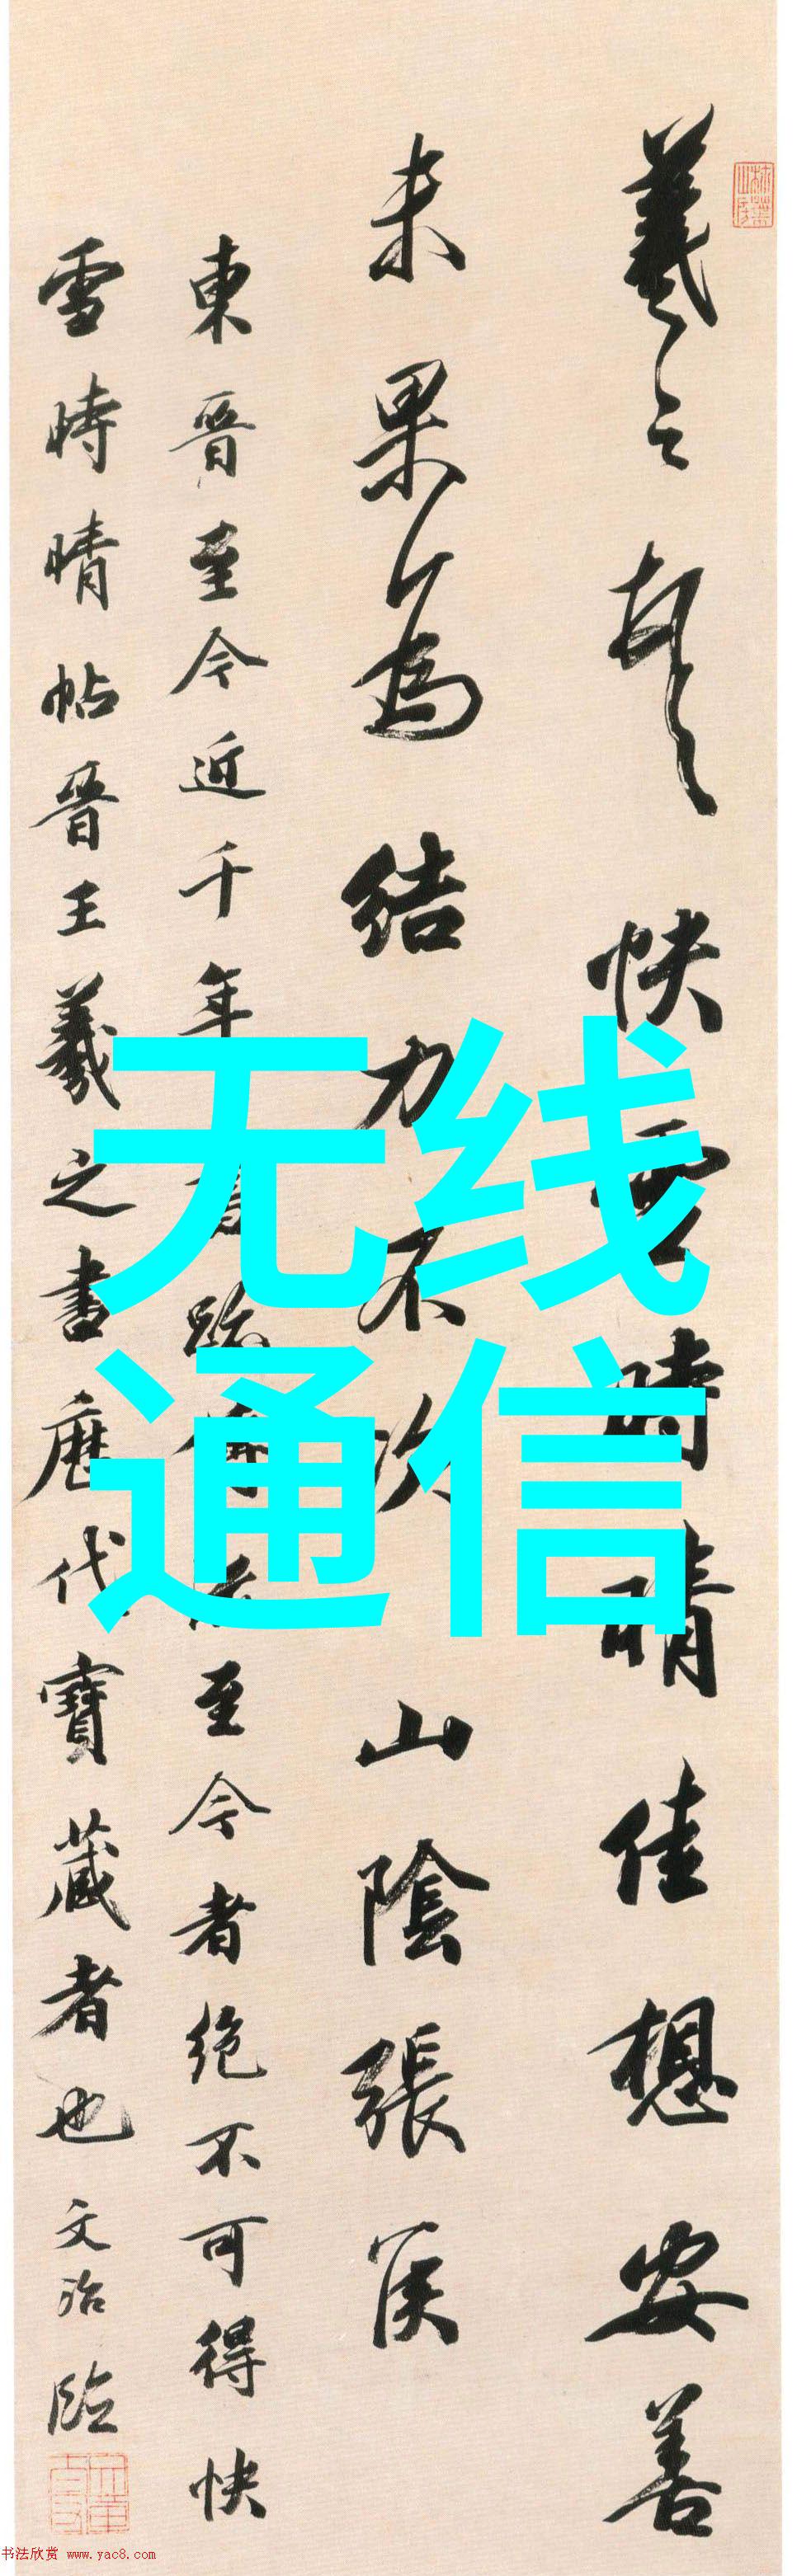 羲之頓首快雪時晴佳想安善
未果為結力不次山陰張侯
東晉至今近千年書跡傳流至今者絶不可得快
雪時晴帖晉王羲之書歷代寶藏者也文治臨
无线
通信
书法欣赏 www.yac8.com